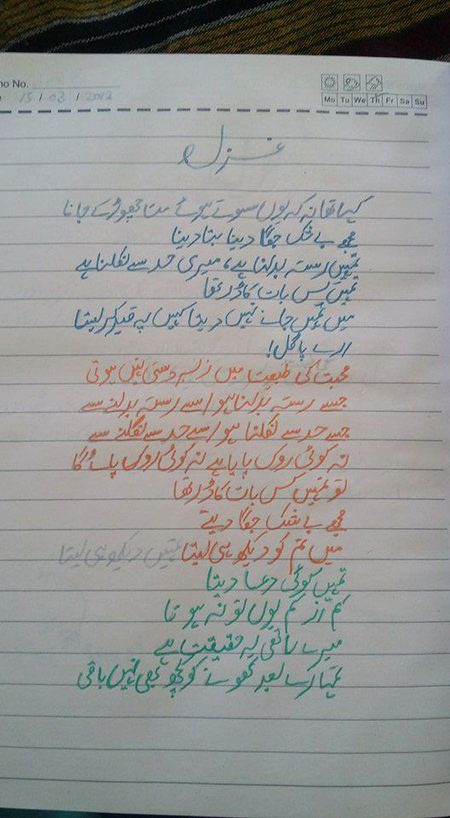 no No.
15 / 03 / 2012
Mo Tu We Th Fr Sa Su
غزل
کہا تھا نہ کہ یوں سوتے ہوئے مت چھوڑ کے جانا
مجھے بے شک جگا دینا بتا دینا
تمہیں رستہ بدلنا ہے، میری حد سے نکلنا ہے
تمہیں کس بات کا ڈر تھا
میں تمہیں جانے نہیں دیتا کہیں پہ قید کر لیتا
ارے پاگل!
محبت کی طبیعت میں زبردستی نہیں ہوتی
جسے رستہ بدلنا ہو اسے رستہ بدلنے سے
جسے حد سے نکلنا ہو اسے حد سے نکلنے سے
نہ کوئی روک پایا ہے نہ کوئی روک پائے گا
تو تمہیں کس بات کا ڈر تھا
مجھے بے شک جگا دیتے
میں تم کو دیکھ ہی لیتا تمہیں دیکھ ہی لیتا
تمہیں کوئی دعا دیتا
کم از کم یوں تو نہ ہوتا
میرے ساتھی یہ حقیقت ہے
تمہارے بعد کھونے کو کچھ بھی نہیں باقی